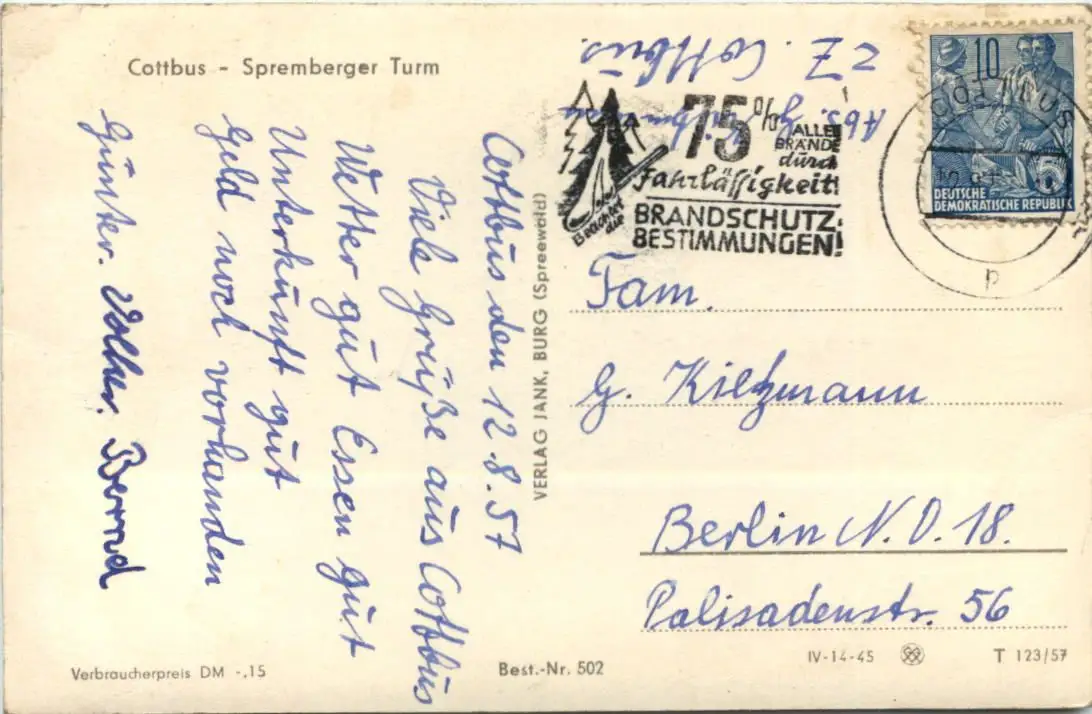 Cottbus - Spremberger Turm
Cottbus den 12.8.57
Viele Grüße aus Cottbus
Wetter gut Essen gut
Unterkunft gut
Geld noch vorhanden
Günter. Volker. Bernd
VERLAG JANK, BURG (Spreewald)
Abs.
z Z. Cottbus.
75% ALLER
BRÄNDE
durch
Fahrlässigkeit!
Beachtet
die
BRANDSCHUTZ-
BESTIMMUNGEN!
COTTBUS
p
10
5
DEUTSCHE
DEMOKRATISCHE REPUBLIK
Fam.
G. Kietzmann
Berlin N.O. 18.
Palisadenstr. 56
Verbraucherpreis DM -,15
Best.-Nr. 502
IV-14-45
T 123/57